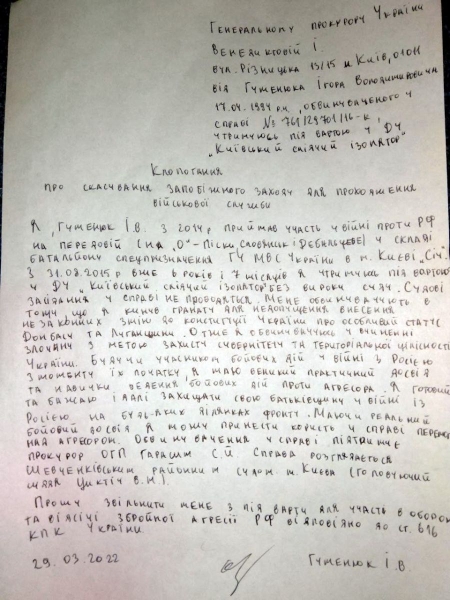 Генеральному прокурору України
Венедиктовій І.
вул. Різницька 13/15 м Київ, 01011
від Гуменюка Ігора Володимировича
17.04.1991 р.н, обвинуваченого у
справі № 761/29701/16-к,
утримуюсь під вартою у ДУ
„Київський слідчий ізолятор"
Клопотання
про скасування запобіжного заходу для проходження
військової служби
Я, Гуменюк І.В. з 2014р приймав участь у війні проти РФ
на передовій (на „0"- Піски Словянськ і Дебальцеве) у складі
батальйону спецпризначення ГУ МВС України в м. Києві „Січ".
З 31.08.2015р вже 6 років і 7 місяців я утримуюсь під вартою
у ДУ „Київський слідчий ізолятор" без вироку суду. Судові
зайдання у справі не проводяться. Мене обвинувачують в
тому, що я кинув гранату для недопущення внесення
незаконних змін до конституції України про особливий статус
Донбасу та Луганщини. Отже я обвинувачуюсь у вчиненні
злочину з метою захисту суверінітету та територіальної цілісності
України. Будучи учасником бойових дій у війні з Росією
з моменту їх початку я маю великий практичний досвід
та навички ведення бойових дій проти агресора. Я готовий
та бажаю і далі захищати свою батьківщину у війні із
Росією на будь-яких ділянках фронту. Маючи реальний
бойовий досвід я можу принести користь у справі перемоги
над агресором. Обвинувачення у справі підтримує
прокурор ОГП Гарашім С.Й. Справа розглядається
Шевченківським районним судом м. Києва (головуючий
суддя Циктіч В.М.).
Прошу звільнити мене з під варти для участь в обороні
та відсічі збройної агресії РФ відповідно до ст. 616
КПК України.
29.03.2022 Гуменюк І.В.